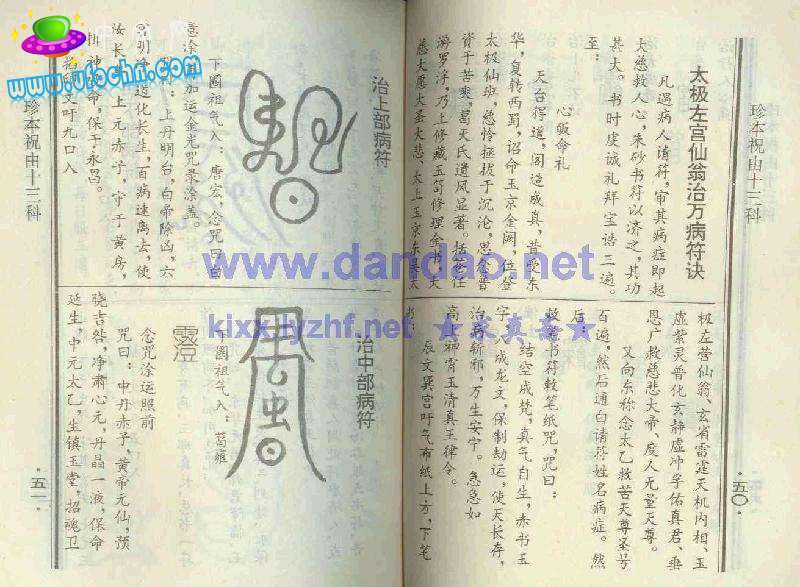 珍本祝由十三科
太极左宫仙翁治万病符诀
凡遇病人请符,审其病症即起
大慈救人心,朱砂书符以济之,其功
其大。书时虔诚礼拜宝诰三遍。
至:
心皈命礼
天台得道,阁造成真,昔受东
华,复转西蜀,诏命玉京金阙,位登
太极仙班,慈怜拯拔于沉沦,恩念普
资于苦爽,葛天氏遗风显著。括苍任
游罗浮,乃上修藏玉笥修理金书。大
慈大愿大圣大慈、太上玉京东吴太
极左营仙翁、玄省雷霆天机内相、玉
虚紫灵普化玄静虚冲孚佑真君、垂
恩广救慈悲大帝、度人无量天尊。
又向东称念太乙救苦天尊圣号
百遍,然后通白请符姓名病症。然
后:
敕笔书符敕笔纸咒,咒曰:
结空成梵,真气自生,赤书五
字,八成龙文,保制劫运,使天长存,
治病斩邪,万生安宁。急急如
高上神霄玉清真王律令。
辰文巽宫吁气布纸上方,下笔
·五〇·
治上部病符
下圈祖气入:唐宏,念咒曰
意涂直加运金光咒录涂盖。
上丹明台,白帝除凶,六
道化长生,百病速离去,使
汝长 上元赤子,守于黄房,
神 命,保于永昌。
文吁九口入
治中部病符
下圈祖气入:葛雍
霪
念咒涂运照前
咒曰:中丹赤子,黄帝元仙,预
晓吉咎,净肃心元,丹晶一液,保命
延生,中元太乙,生镇玉堂,招魂卫
珍本祝由十三科
·五一·
www.ufochn.com
www.dandao.net
kixx.lyzhf.net